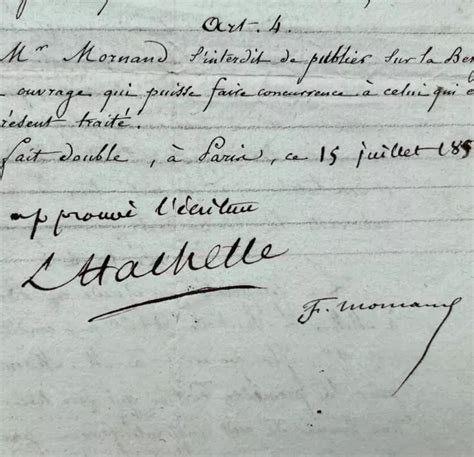 Art. 4.
Mr Mornand s'interdit de publier sur la Bel
ouvrage qui puisse faire concurrence à celui qui
résent traité.
fait double, à Paris, ce 15 juillet 185
approuvé l'écriture
L Hachette
F. Mornand